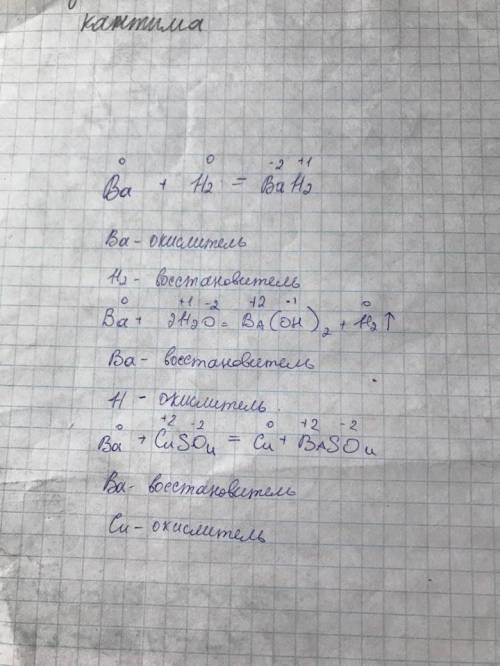 кантима
0 0 -2 +1
Ba + H2 = BaH2
Ba - окислитель
H2 - восстановитель
0 +1 -2 +2 -1 0
Ba + 2H2O = BA(OH)2 + H2↑
Ba - восстановитель
H - окислитель
0 +2 -2 0 +2 -2
Ba + CuSO4 = Cu + BASO4
Ba - восстановитель
Cu - окислитель